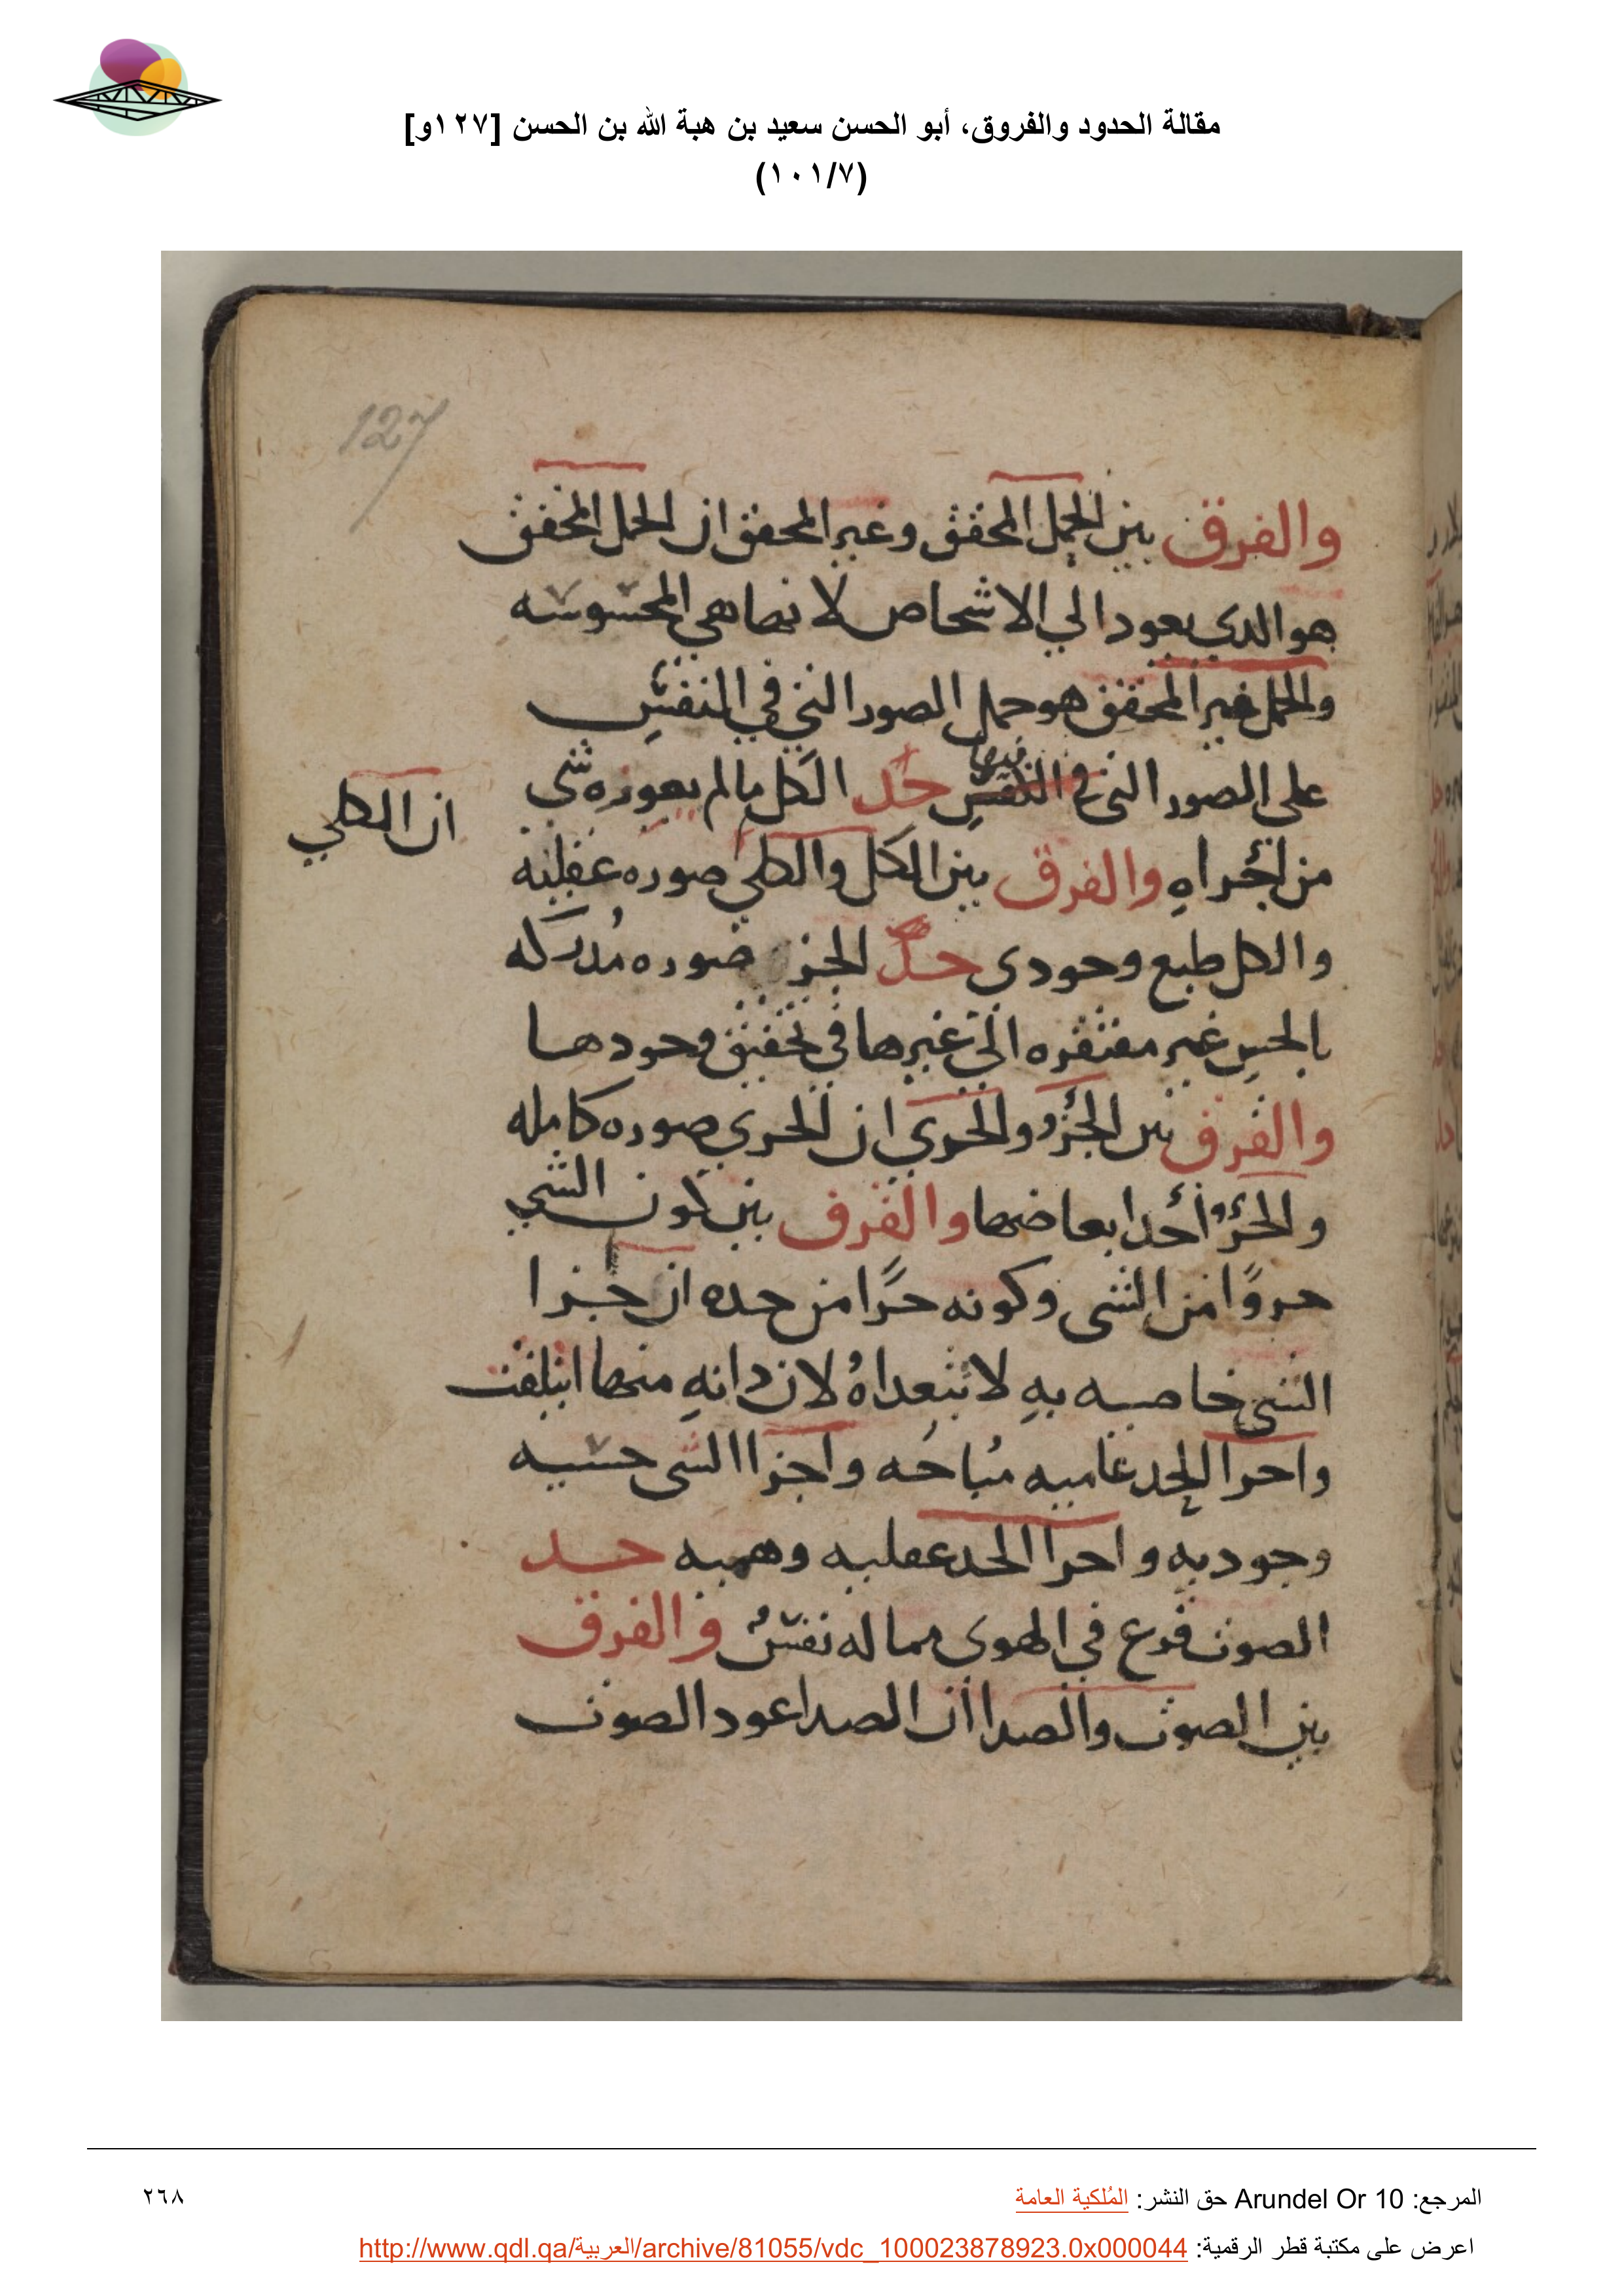 مقالة الحدود والفروق، أبو الحسن سعيد بن هبة الله بن الحسن [١٢٧و]
(١٠١/٧)
127
والفرق بين الحمل المحقق وغير المحقق ان الحمل المحقق
هو الدي يعود الي الاشخاص لانها هي المحسوسه
والحمل غير المحقق هو حمل الصور التي في النفس
على الصور التي في النفس فيها حد الكل ما لم يعوزه شي
ان الكلي
من اجزاه والفرق بين الكل والكلي صوره عقليه
والكل طبع وجودي حد الجز صوره مدركه
بالحس غير مفتقره الى غيرها في تحقيق وجودها
والفرق بين الجزو والجزي ان الجزي صوره كامله
والجزو احد ابعاضها والفرق بين كون الشي
جزوا من الشي وكونه جزا من حده ان جزا
الشي خاصيه به لا تتعداه لان داته منها ايتلفت
واجزا الحد عاميه مباحه واجزا الشي حسيه
وجوديه واجزا الحد عقليه وهميه حد
الصوت قرع في الهوى مما له نفس والفرق
بين الصوت والصدا ان الصدا عود الصوت
المرجع: Arundel Or 10 حق النشر: المُلكية العامة
٢٦٨
اعرض على مكتبة قطر الرقمية: http://www.qdl.qa/العربية/archive/81055/vdc_100023878923.0x000044